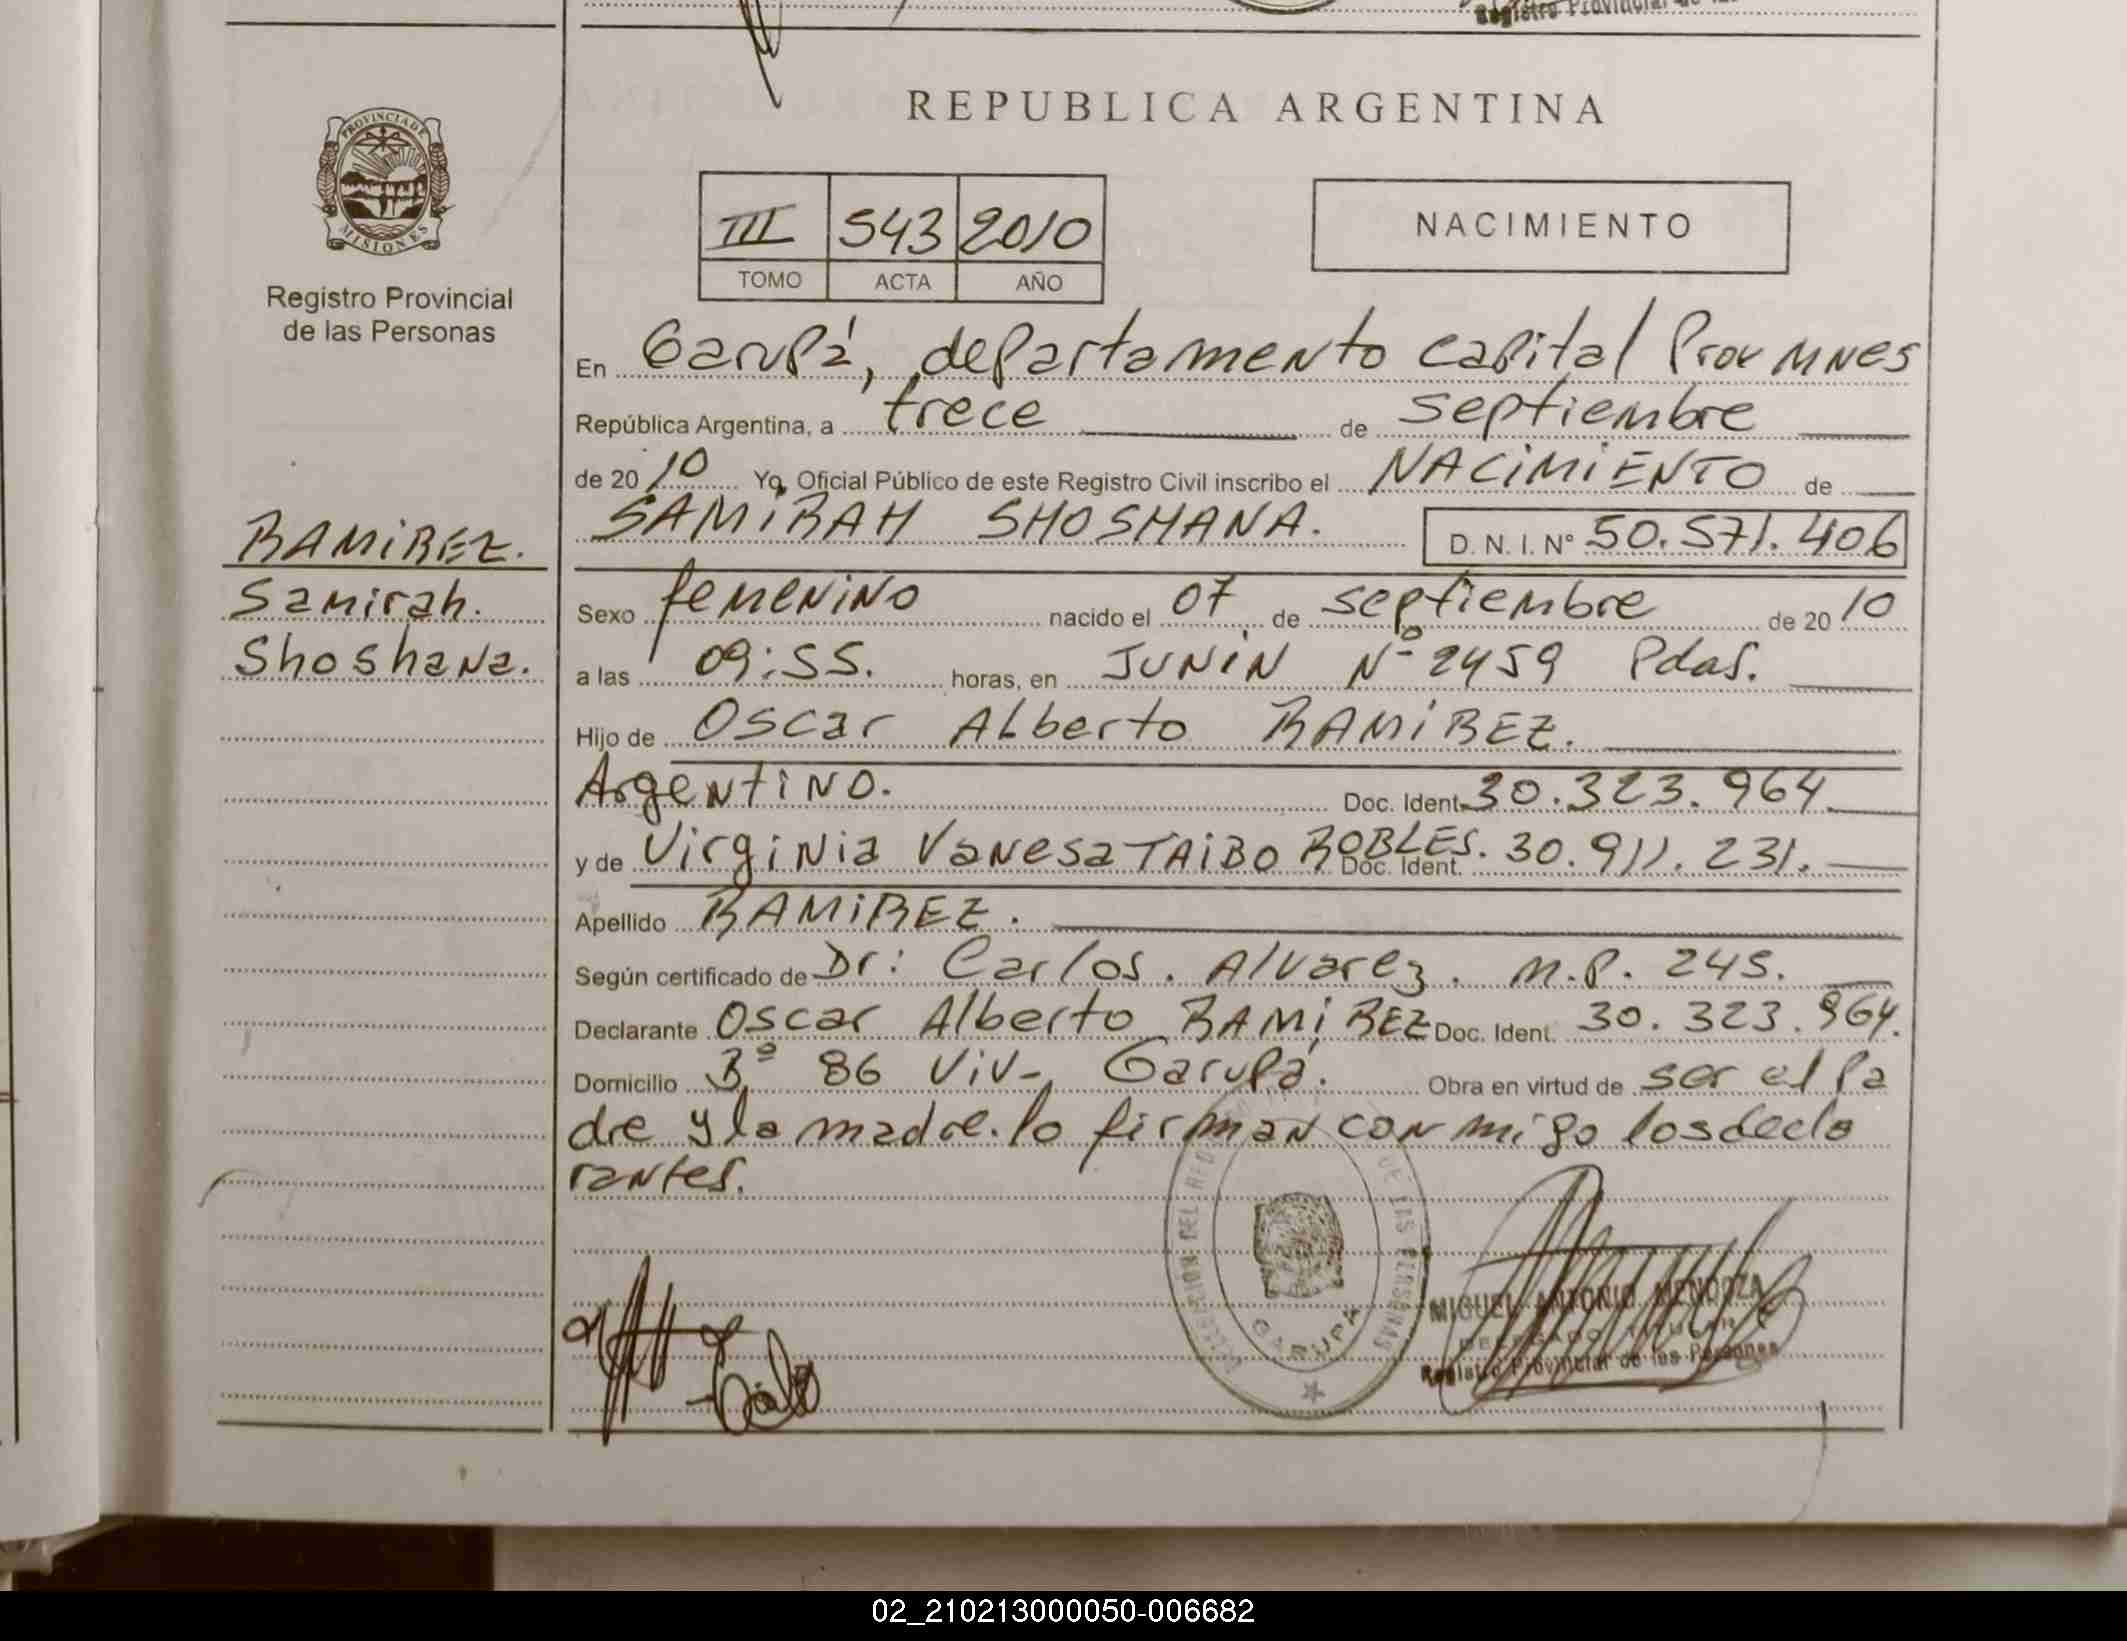 Registro Provincial de las
REPUBLICA ARGENTINA
PROVINCIA DE
MISIONES
Registro Provincial
de las Personas
III 543 2010
TOMO ACTA AÑO
NACIMIENTO
En Garupá, departamento capital Prov MNES
República Argentina, a trece de septiembre
de 2010 Yo, Oficial Público de este Registro Civil inscribo el NACIMIENTO de
SAMIRAH SHOSHANA. D. N. I. N° 50.571.406
RAMIREZ.
Samirah.
Shoshana.
Sexo femenino nacido el 07 de septiembre de 2010
a las 09:55. horas, en JUNIN Nº 2459 Pdas.
Hijo de Oscar Alberto RAMIREZ.
Argentino. Doc. Ident. 30.323.964
y de Virginia Vanesa TAIBO ROBLES. Doc. Ident. 30.911.231.
Apellido RAMIREZ.
Según certificado de Dr: Carlos. Alvarez. M.P. 245.
Declarante Oscar Alberto RAMIREZ Doc. Ident. 30.323.964.
Domicilio Bº 86 Viv- Garupá. Obra en virtud de ser el Pa
dre y la madre. lo firman con migo los decla
rantes.
DE LAS PERSONAS
GARUPA
MIGUEL ANTONIO MENDOZA
Registro Provincial de las Personas
02_210213000050-006682